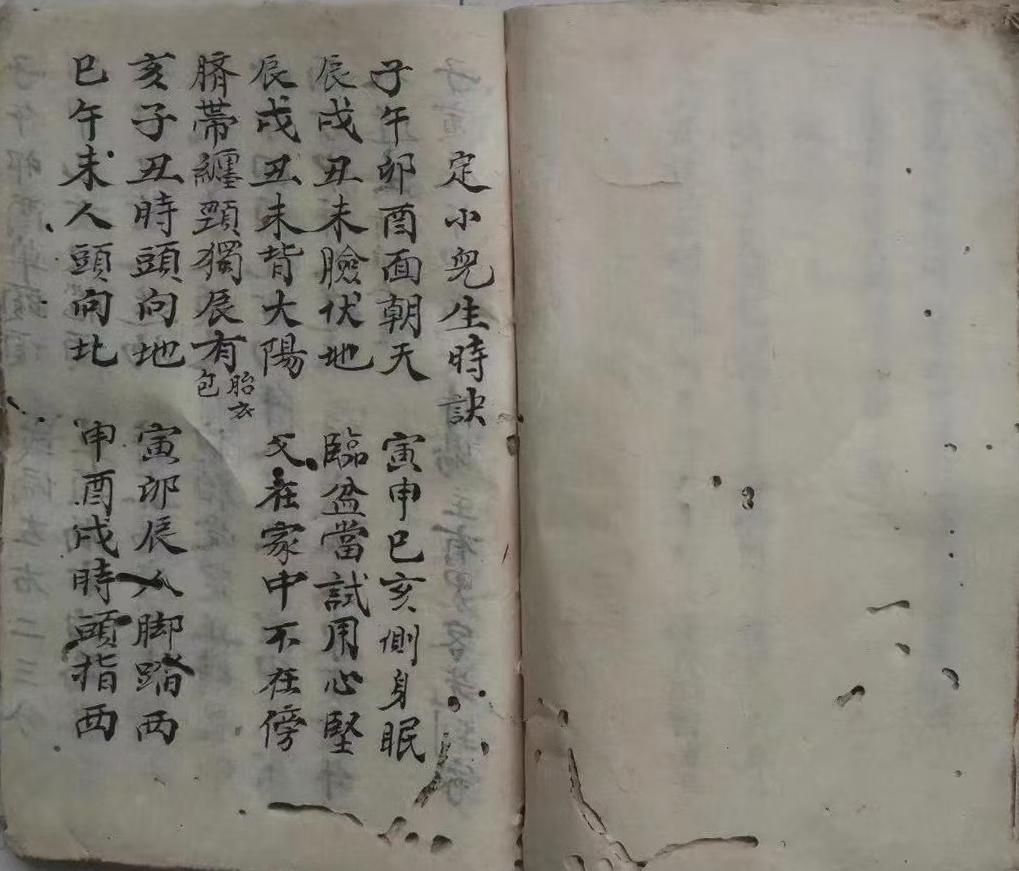 定小兒生時訣
子午卯酉面朝天 寅申巳亥側身眠
辰戌丑未臉伏地 臨盆當試用心堅
辰戌丑未背大陽 父在家中不在傍
臍帶纏頸獨辰有 胎衣包
亥子丑時頭向地 寅卯辰人脚踏西
巳午未人頭向北 申酉戌時頭指西